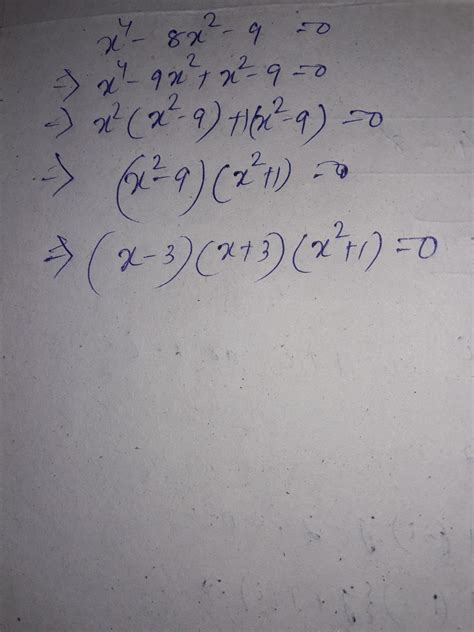 x⁴ - 8x² - 9 = 0
⇒ x⁴ - 9x² + x² - 9 = 0
⇒ x²(x² - 9) + 1(x² - 9) = 0
⇒ (x² - 9)(x² + 1) = 0
⇒ (x - 3)(x + 3)(x² + 1) = 0